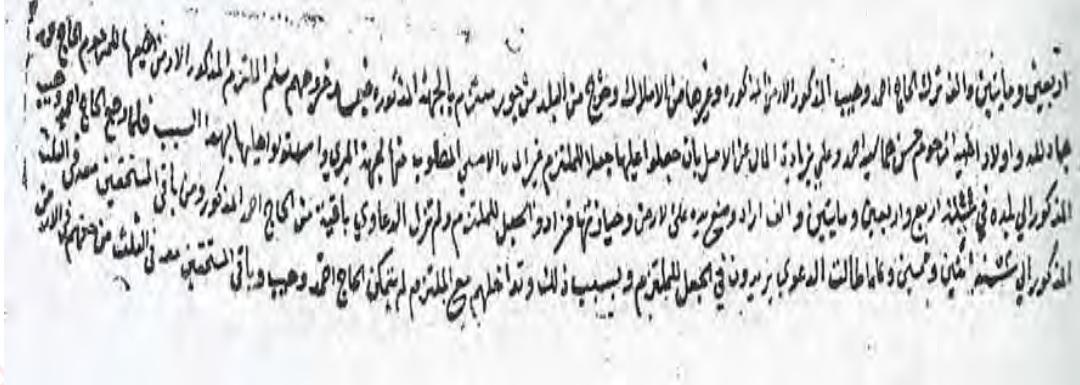 اربعين ومايتين والف ترك الحاج احمد وهيب المذكور الارض المذكوره وغيرها من الاملاك وخرج من البلد من جور ملتزم بالجهة المذكورة فبعد خروجهم سلم الملتزم المذكور الارض جميعها للمرحوم الحاج
جاد الله واولاد اخيه المرحوم حسن هما السيد احمد وعلي بزيادة المال عن الاصل بان جعلوا عليها جعلا للملتزم غير المال الاصلي المطلوب منها لجهة الميري واستولوا عليها بهذا السبب فلما رجع الحاج احمد وهيب
المذكور الي بلده في سنة اربع واربعين ومايتين والف اراد وضع يده على الارض وحيازتها فزادو الجعل للملتزم ولم تزل الدعاوي باقية من الحاج احمد المذكور ومن باقي المستحقين معه في الثلث
المذكور الي سنة اثنين وخمسين وكلما طالت الدعوي يزيدون في الجعل للملتزم وبسبب ذلك وتداخلهم مع الملتزم لم يتمكن الحاج احمد وهيب وباقي المستحقين معه في الثلث من حقهم في الارض